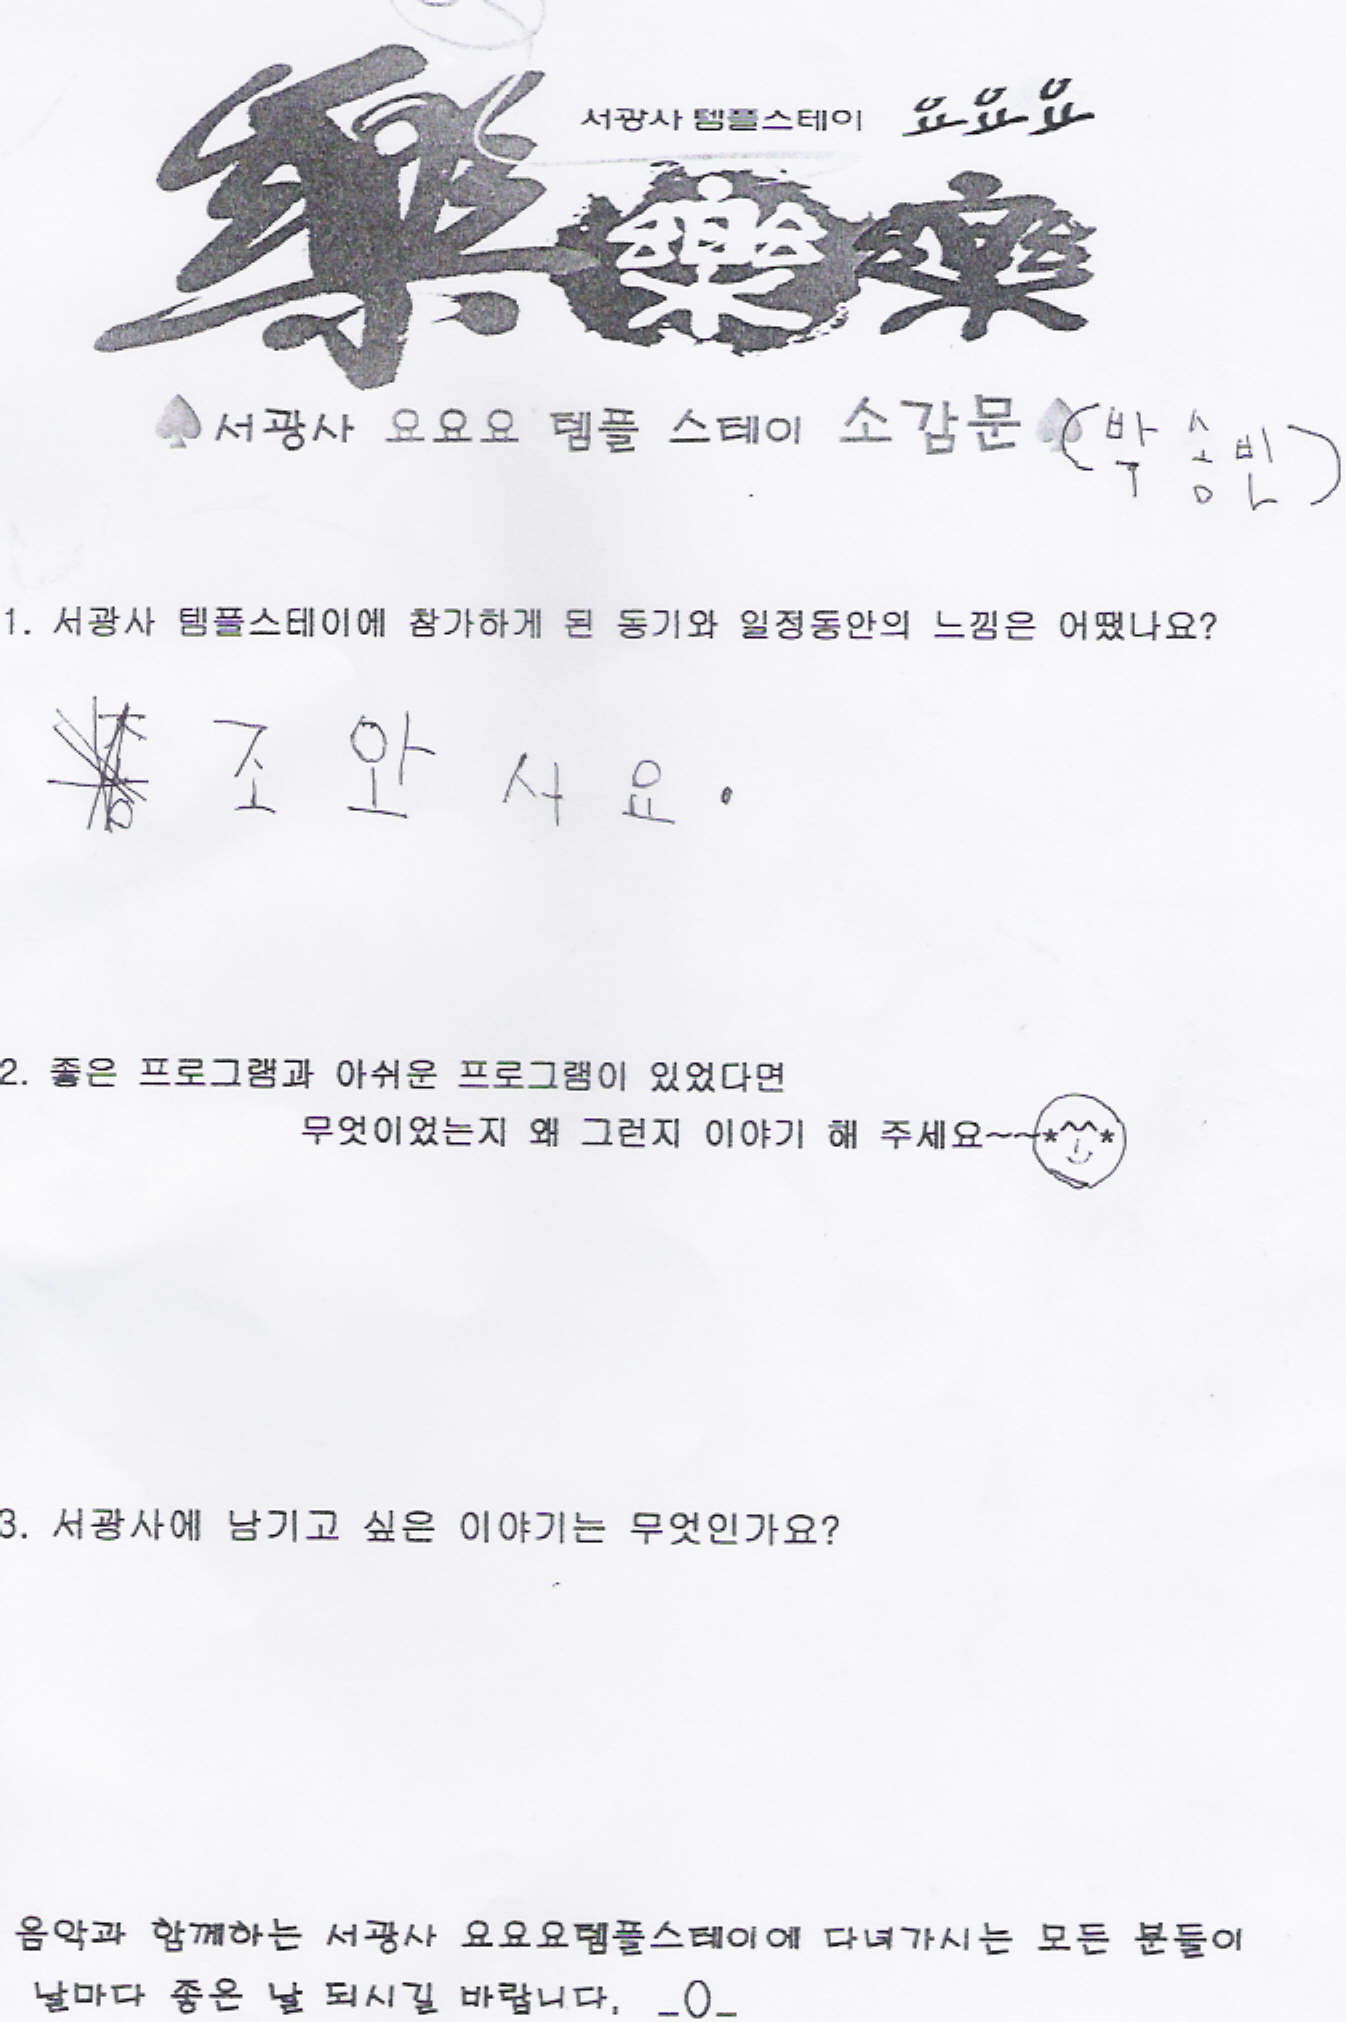 서광사 템플스테이 요요요
樂 樂 樂
서광사 요요요 템플 스테이 소감문 (박승빈)
1. 서광사 템플스테이에 참가하게 된 동기와 일정동안의 느낌은 어땠나요?
조아사요.
2. 좋은 프로그램과 아쉬운 프로그램이 있었다면
무엇이었는지 왜 그런지 이야기 해 주세요~~*^^*
3. 서광사에 남기고 싶은 이야기는 무엇인가요?
음악과 함께하는 서광사 요요요템플스테이에 다녀가시는 모든 분들이
날마다 좋은 날 되시길 바랍니다. _()_